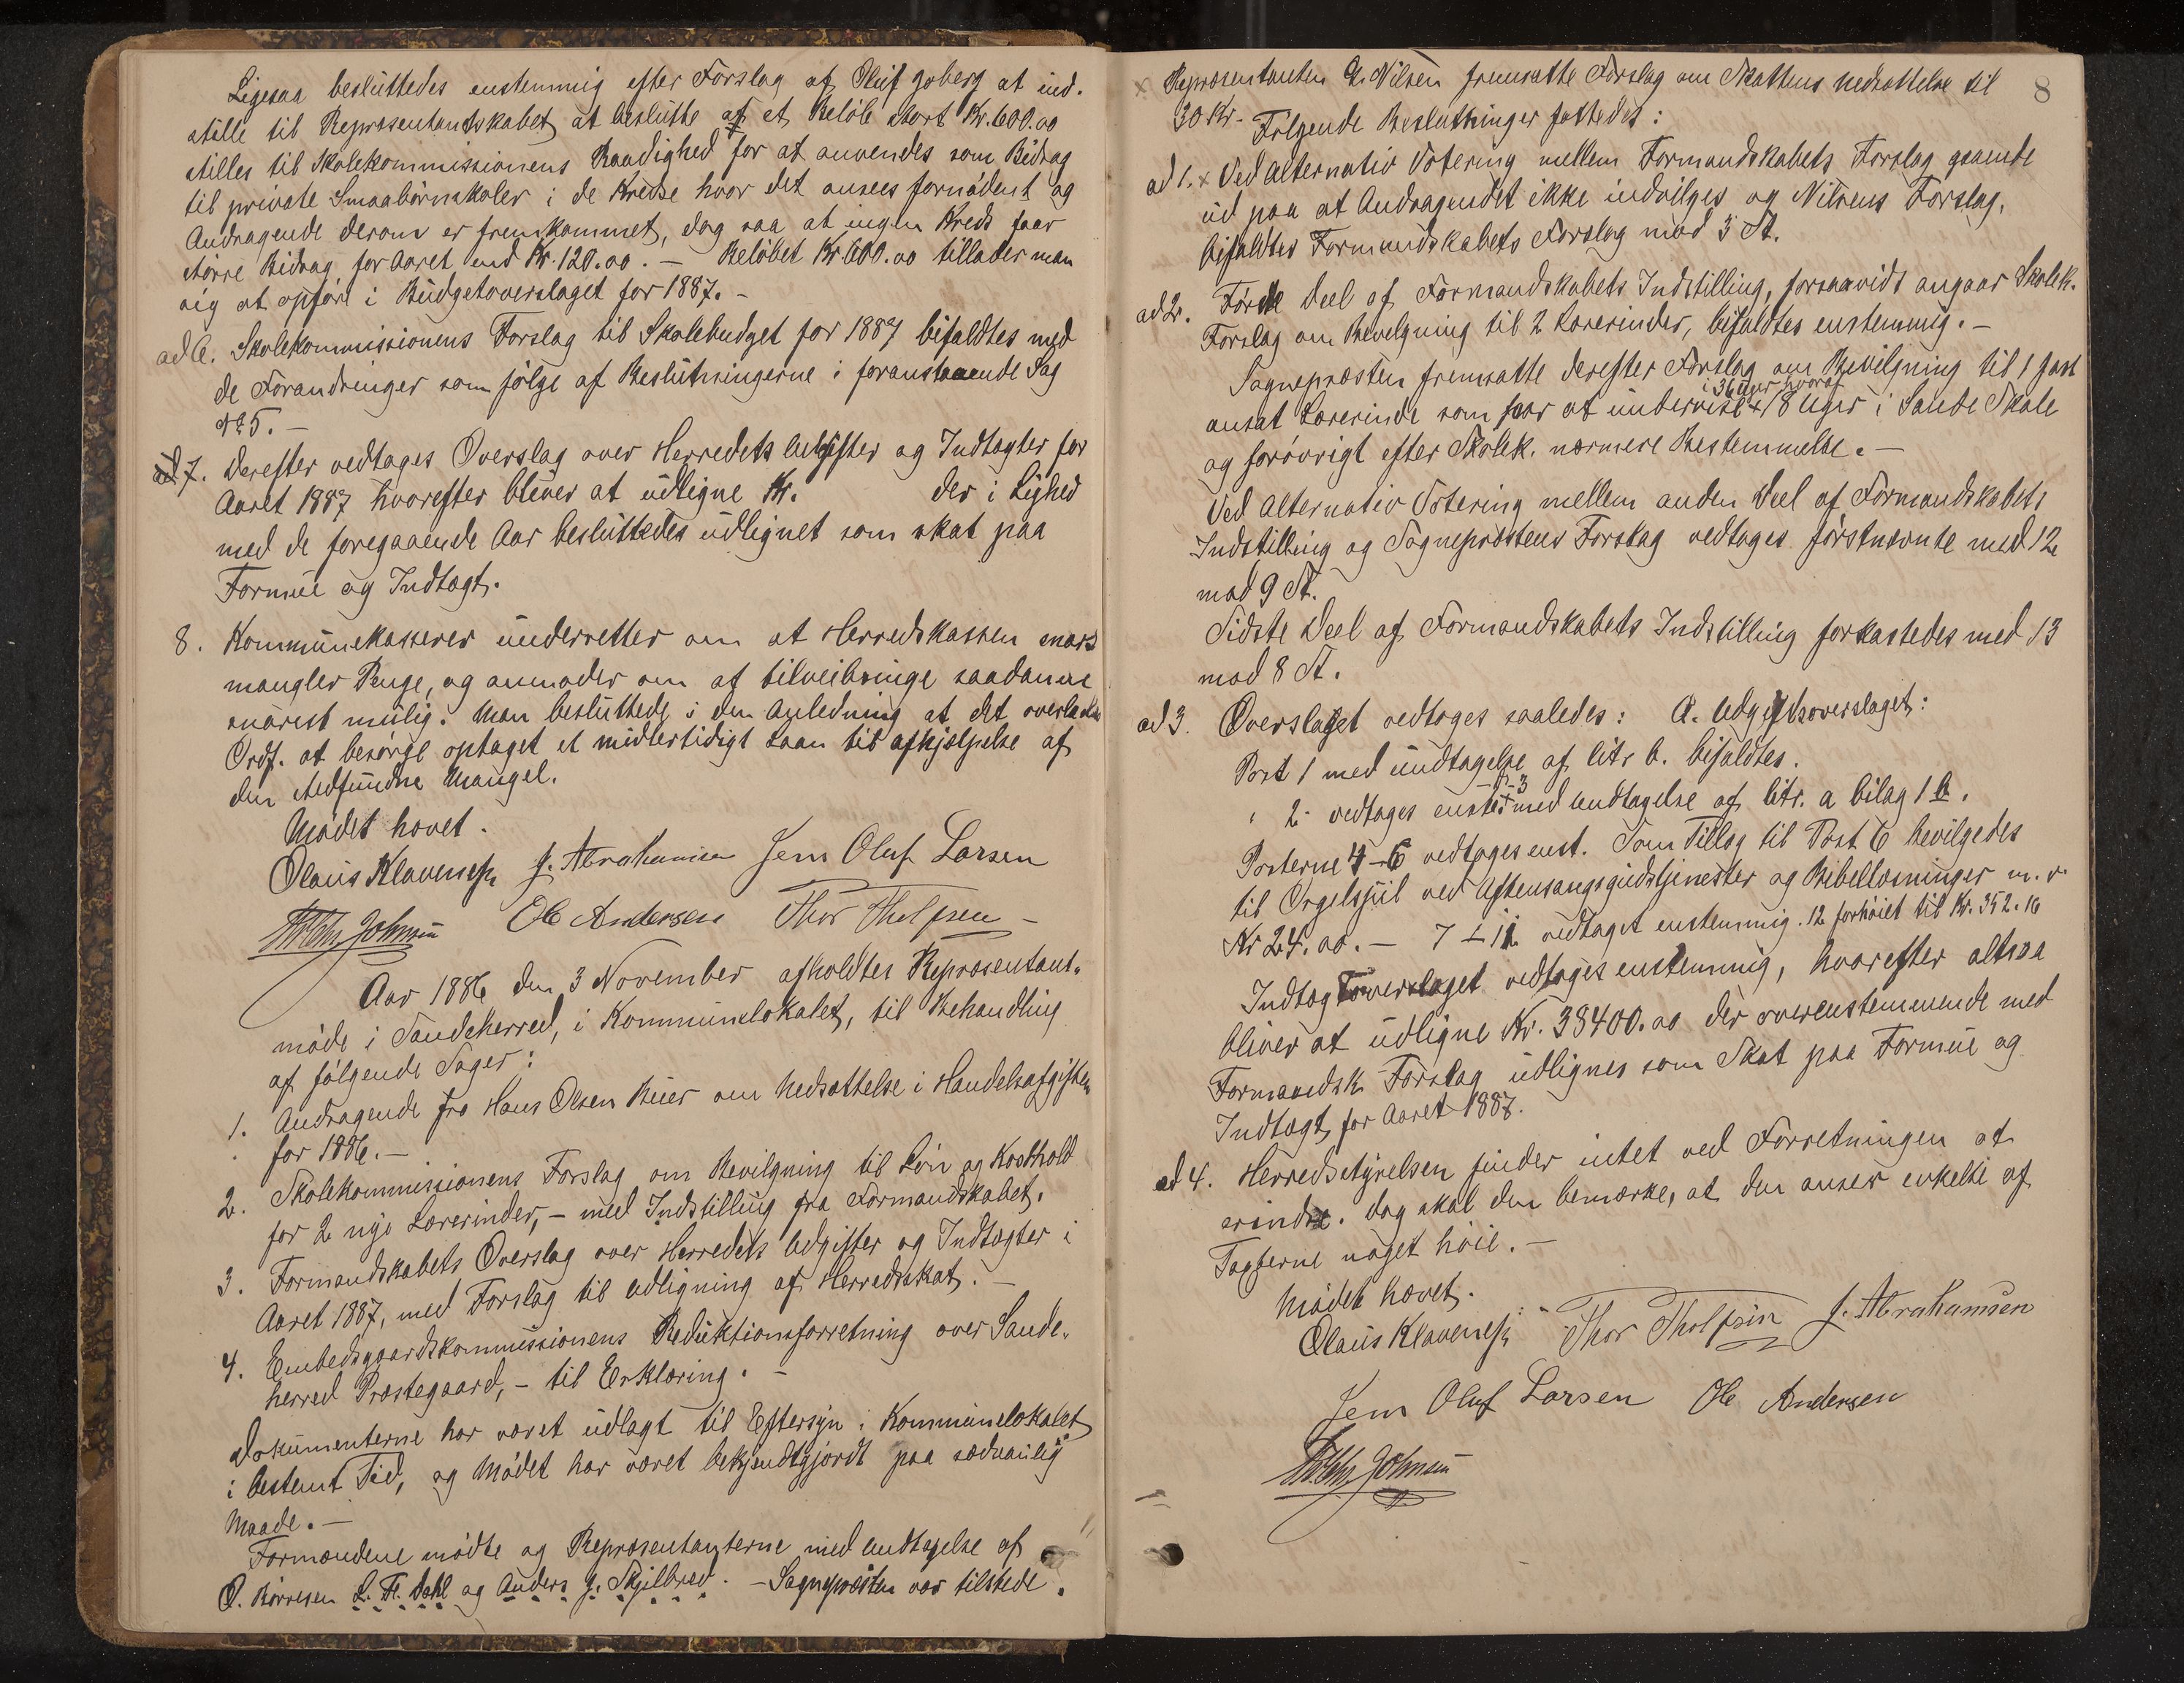 Ligesaa besluttedes enstemmig efter Forslag af Oluf Goberg at ind-
stille til Repræsentantskabet at beslutte at et Beløb stort Kr. 600.00
stilles til Skolekommissionens Raadighed for at anvendes som Bidrag
til private Smaabørnskoler i de Kredse hvor det ansees fornødent og
Andragende derom er fremkommet, dog saa at ingen Kreds faar
større Bidrag for Aaret end Kr. 120.00. — Beløbet Kr 600.00 tillader man
sig at opføre i Budgetoverslaget for 1887. -
ad 6. Skolekommissionens Forslag til Skolebudget for 1887 bifaldtes med
de Forandringer som følge af Beslutningerne i foranstaaende Sag
No 5. —
ad 7. Derefter vedtages Overslag over Herredets Udgifter og Indtægter for
Aaret 1887 hvorefter bliver at udligne Kr. der i Lighed
med de foregaaende Aar besluttedes udlignet som skat paa
Formue og Indtægt.
8. Kommunekasserer underretter om at Herredskassen snars
mangler Penge, og anmoder om at tilveibringe saadanne
snarest mulig. Man besluttede i den Anledning at det overlades
Ordf. at besørge optaget et midlertidigt Laan til afhjælpelse af
den stedfundne Mangel.
Mødet hævet.
Olaus Klavenesſ J. Abrahamsen Jens Oluf Larsen
Johnsen Ole Andersen Thor Tholfsen —
Aar 1886 den 3 November afholdtes Repræsentant-
møde i Sandeherred, i Kommunelokalet, til Behandling
af følgende Sager:
1. Andragende fra Hans Olsen Buer om Nedsættelse i Handelsafgiften
for 1886. —
2. Skolekommissionens Forslag om Bevilgning til Løn og Kosthold
for 2 nye Lærerinder, — med Indstilling fra Formandskabet.
3. Formandskabets Overslag over Herredets Udgifter og Indtægter i
Aaret 1887, med Forslag til Udligning af Herredsskat. —
4. Embedsgaardskommissionens Reduktionsforretning over Sande-
herred Præstegaard, — til Erklæring. —
Dokumenterne har været udlagt til Eftersyn i Kommunelokalet
i bestemt Tid, og Mødet har været bekjendtgjordt paa sædvanlig
Maade. —
Formændene mødte og Repræsentanterne med Undtagelse af
O. Børresen L. Fr. Dahl og Anders J. Skjelbred. — Sognepræsten var tilstede.
8
x Repræsentanten Nilsen fremsatte Forslag om Skattens nedsættelse til
30 Kr. - Følgende Beslutninger fattedes:
ad 1. x Ved alternativ Votering mellem Formandskabets Forslag gaaende
ud paa at Andragendet ikke indvilges og Nilsens Forslag,
bifaldtes Formandskabets Forslag mod 3 St.
ad 2. Første Deel af Formandskabets Indstilling, forsaavidt angaar Skolek.
Forslag om Bevelgning til 2 Lærerinder, bifaldtes enstemmig. —
Sognepræsten fremsatte derefter Forslag om Bevilgning til 1 fast
i 36 Uger hvoraf
ansat Lærerinde som faar at undervise + 18 Uger i Sande Skole
og forøvrigt efter Skolek. nærmere Bestemmelse. —
Ved Alternativ Votering mellem anden Deel af Formandskabets
Indstilling og Sognepræstens Forslag vedtages førstnævnte med 12
mod 9 St.
Sidste Deel af Formandskabets Indstilling forkastedes med 13
mod 8 St.
ad 3. Overslaget vedtoges saaledes: A. Udgiftsoverslaget:
Post 1 med undtagelse af litr b. bifaldtes.
" 2 - vedtages enst. med undtagelse af litr. a bilag 1 b.
Posterne 4-6 vedtages enst. Som Tillæg til Post 6 bevilgedes
til Orgelspil ved Aftensangsgudstjenester og Bibellæsninger m. v.
Kr 24.00. — 7 - 11 vedtaget enstemmig. 12 forhøiet til Kr. 352.16
Indtægtsoverslaget vedtoges enstemmig, hvorefter altsaa
bliver at udligne Kr. 38400.00 der overenstemmende med
Formandsk. Forslag udlignes som Skat paa Formue og
Indtægt, for Aaret 1887.
ad 4. Herredsstyrelsen finder intet ved Forretningen at
erindre. Dog skal den bemærke, at den anser enkelte af
Taxterne noget høie. —
Mødet hævet.
Olaus Klavenesſ Thor Tholfsen J. Abrahamsen
Jens Oluf Larsen Ole Andersen
Johnsen